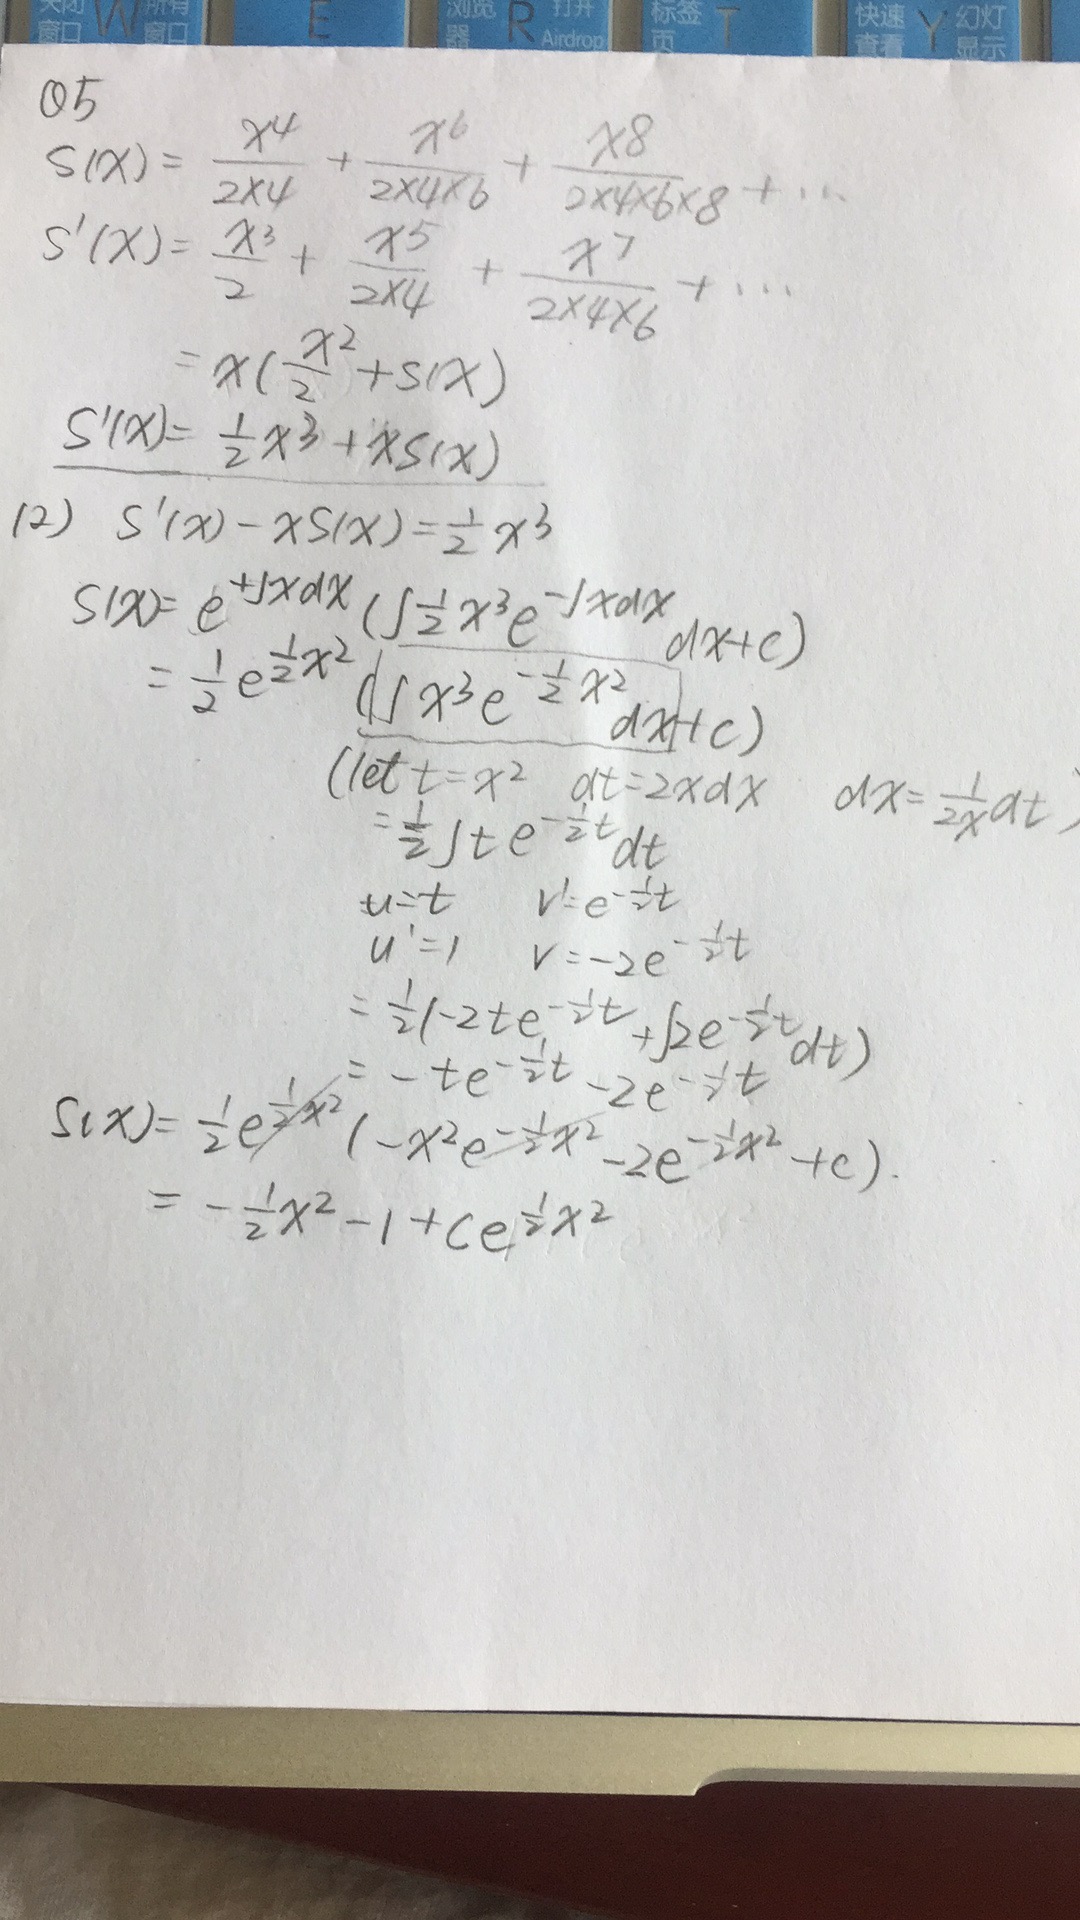 关闭窗口 W 所有窗口 E 浏览器 R 打开 Airdrop 标签页 T 快速查看 Y 幻灯显示
Q5
S(x) = x^4/(2×4) + x^6/(2×4×6) + x^8/(2×4×6×8) + ...
S'(x) = x^3/2 + x^5/(2×4) + x^7/(2×4×6) + ...
= x(x^2/2 + S(x))
S'(x) = 1/2 x^3 + xS(x)
(2) S'(x) - xS(x) = 1/2 x^3
S(x) = e^{+∫xdx} (∫ 1/2 x^3 e^{-∫xdx} dx + c)
= 1/2 e^{1/2 x^2} (∫ x^3 e^{-1/2 x^2} dx + c)
(let t = x^2 dt = 2xdx dx = 1/2x dt)
= 1/2 ∫ t e^{-1/2 t} dt
u = t v' = e^{-1/2 t}
u' = 1 v = -2e^{-1/2 t}
= 1/2 (-2te^{-1/2 t} + ∫2e^{-1/2 t} dt)
= -te^{-1/2 t} - 2e^{-1/2 t}
S(x) = 1/2 e^{1/2 x^2} (-x^2 e^{-1/2 x^2} - 2e^{-1/2 x^2} + c).
= -1/2 x^2 - 1 + ce^{1/2 x^2}